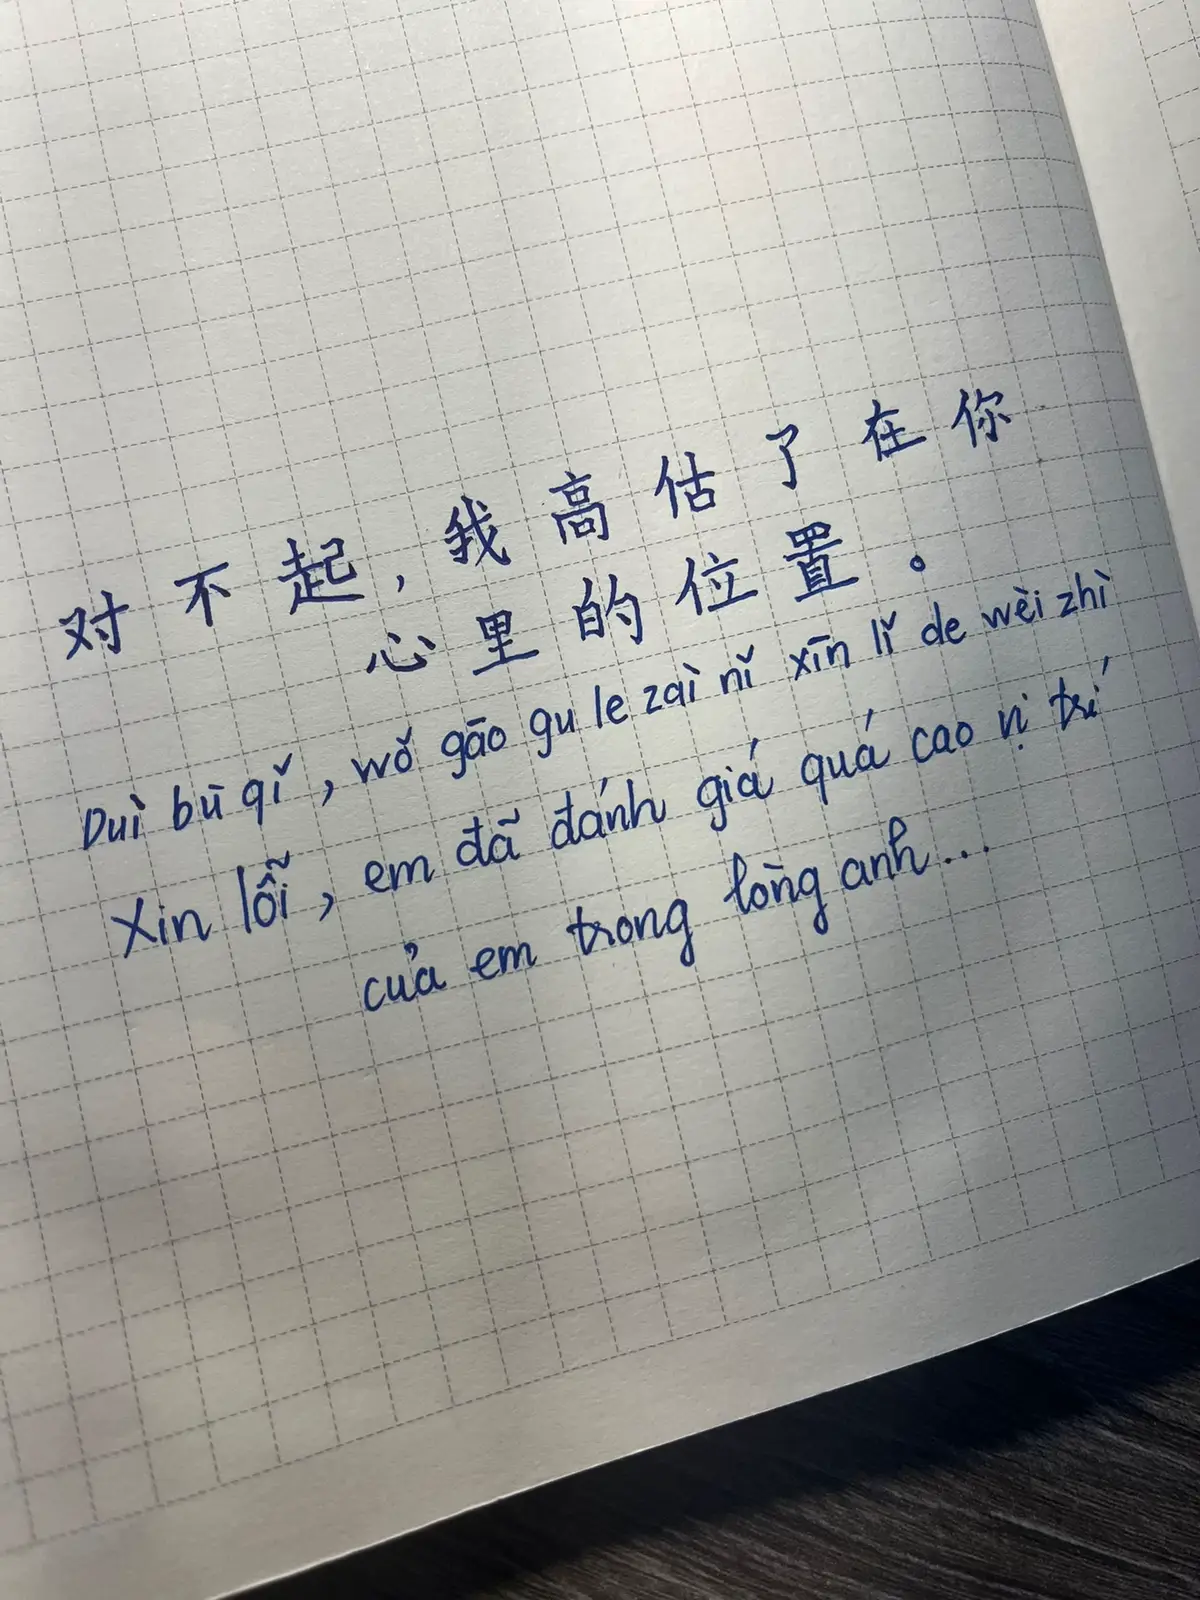 对不起,我高估了在你
心里的位置。
Duì bù qǐ, wǒ gāo gu le zài nǐ xīn lǐ de wèi zhì
Xin lỗi, em đã đánh giá quá cao vị trí
của em trong lòng anh...